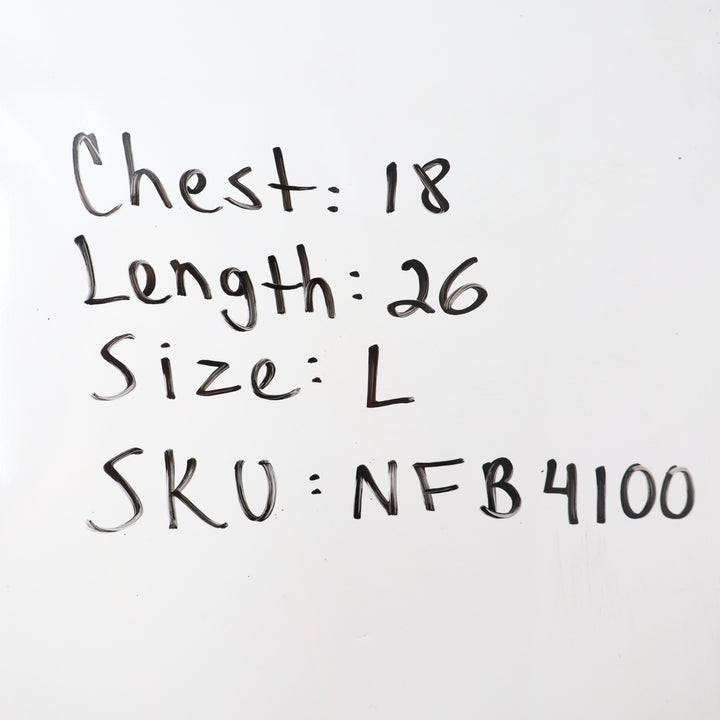 Chest: 18
Length: 26
Size: L
SKU: NFB4100